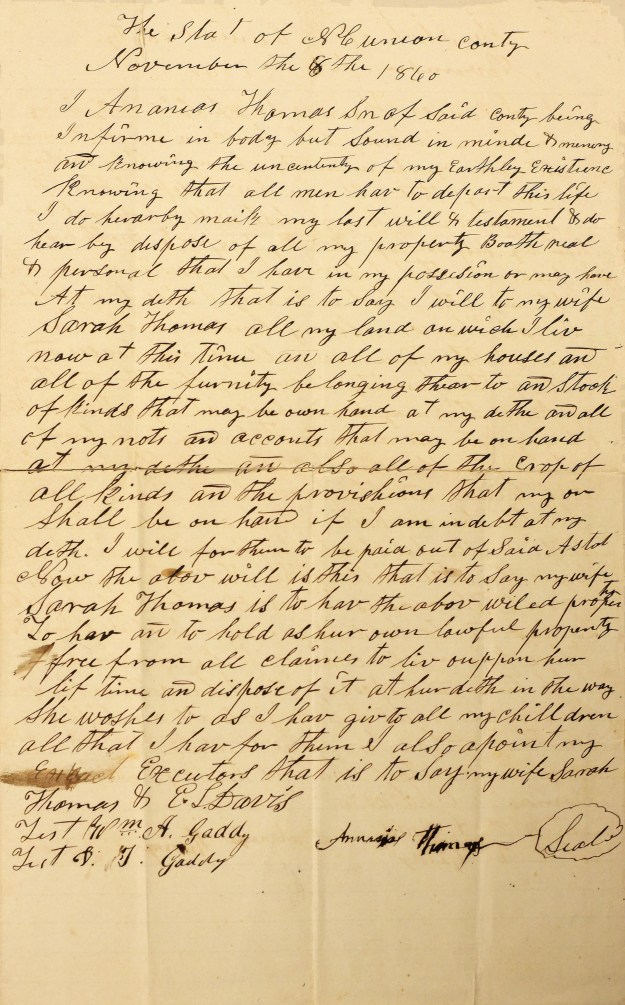 The Stat of NC union conty
November the 8 the 1860
I Ananias Thomas Snr of Said conty being
Infirme in body but Sound in minde & memory
an knowing the uncertenty of my Earthley Existence
Knowing that all men hav to depart this life
I do hearby maik my last will & testament & do
hear by dispose of all my property Booth real
& personal that I have in my possesion or may have
At my deth that is to Say I will to my wife
Sarah Thomas all my land on wich I liv
now at this time an all of my houses an
all of the furnity belonging thear to an Stock
of kinds that may be own hand at my dethe an all
of my nots an acconts that may be on hand
at my dethe an also all of the Crop of
all kinds an the provishions that my
Shall be on han if I am in debt at my
deth. I will for them to be paid out of Said
Now the abov will is this that is to Say my wife
Sarah Thomas is to hav the abov wiled property
To hav an to hold as hur own lawful property
free from all claimes to liv ouppon hur
lif time an dispose of it at hur deth in the way
She woshes to as I hav giv to all my chilldren
all that I hav for them I also apoint my
Executors that is to Say my wife Sarah
Thomas & E. S. Davis
Test Wm A. Gaddy
Test Gaddy
Thomas Seal